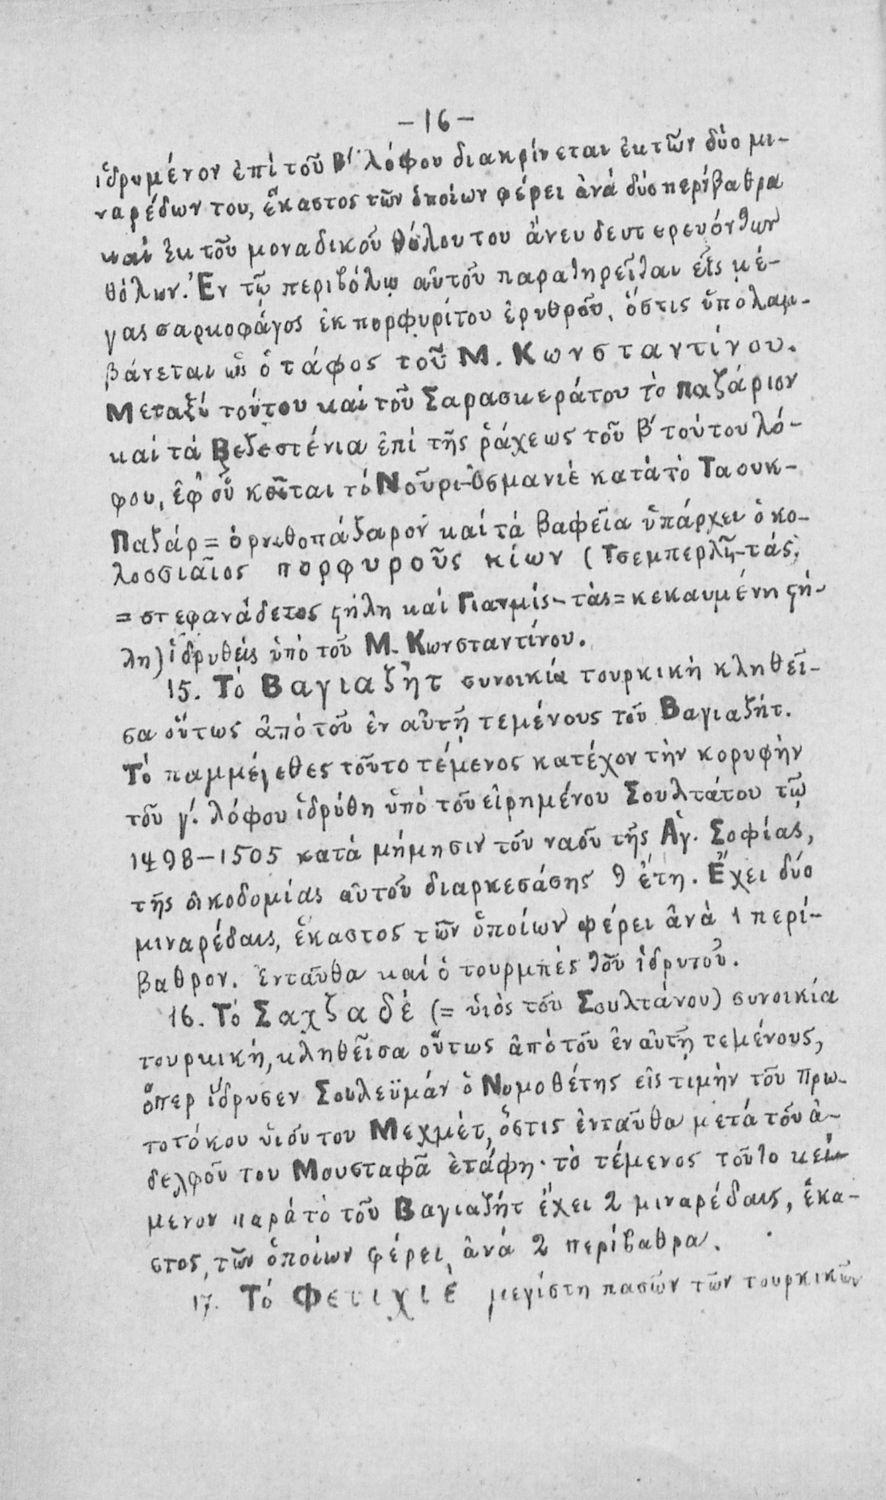 -16-
ἱδρυμένον ἐπὶ τοῦ Β΄ λόφου διακρίνεται ἐκ τῶν δύο μι-
ναρέδων του, ἕκαστος τῶν ὁποίων φέρει ἀνὰ δύο περίβαθρα
καὶ ἐκ τοῦ μοναδικοῦ θόλου του ἄνευ δευτερευόντων
θόλων. Ἐν τῷ περιβόλῳ αὐτοῦ παρατηρεῖται εἷς μέ-
γας σαρκοφάγος ἐκ πορφυρίτου ἐρυθροῦ, ὅστις ὑπολαμ-
βάνεται ὡς ὁ τάφος τοῦ Μ. Κωνσταντίνου.
Μεταξὺ τούτου καὶ τοῦ Σαρασκεράτου τὸ παζάριον
καὶ τὰ Βεζεστένια ἐπὶ τῆς ῥάχεως τοῦ β΄ τούτου λό-
φου, ἐφ' οὗ κεῖται τὸ Νοῦρι-Οσμανιὲ κατὰ τὸ Ταουκ-
Παζάρ = ὀρνιθοπάζαρον καὶ τὰ βαφεῖα ὑπάρχει ὁ κο-
λοσσιαῖος πορφυροῦς κίων (Τσεμπερλῆ-τάς,
= στεφανάδετος ϛήλη καὶ Γιανμίς-τὰς = κεκαυμένη ϛή-
λη) ἱδρυθεὶς ὑπὸ τοῦ Μ. Κωνσταντίνου.
15. Τὸ Βαγιαζὴτ συνοικία τουρκικὴ κληθεῖ-
σα οὕτως ἀπὸ τοῦ ἐν αὐτῇ τεμένους τοῦ Βαγιαζήτ.
Τὸ παμμέγεθες τοῦτο τέμενος κατέχον τὴν κορυφὴν
τοῦ γ΄. λόφου ἱδρύθη ὑπὸ τοῦ εἰρημένου Σουλτάτου τῷ
1498-1505 κατὰ μήμησιν τοῦ ναοῦ τῆς Ἁγ. Σοφίας,
τῆς οἰκοδομίας αὐτοῦ διαρκεσάσης 9 ἔτη. Ἔχει δύο
μιναρέδαις, ἕκαστος τῶν ὁποίων φέρει ἀνὰ 1 περί-
βαθρον. Ἐνταῦθα καὶ ὁ τουρμπὲς τοῦ ἱδρυτοῦ.
16. Τὸ Σαχζαδὲ (= ὑιὸς τοῦ Σουλτάνου) συνοικία
τουρκική, κληθεῖσα οὕτως ἀπὸ τοῦ ἐν αὐτῇ τεμένους,
ὅπερ ἵδρυσεν Σουλεϋμάν ὁ Νομοθέτης εἰς τιμὴν τοῦ πρω-
τοτόκου ὑιοῦ του Μεχμὲτ, ὅστις ἐνταῦθα μετὰ τοῦ ἀ-
δελφοῦ του Μουσταφᾶ ἐτάφη· τὸ τέμενος τοῦτο κεί-
μενον παρὰ τὸ τοῦ Βαγιαζήτ ἔχει 2 μιναρέδαις, ἕκα-
στος, τῶν ὁποίων φέρει, ἀνὰ 2 περίβαθρα.
17. Τὸ Φετιχιέ μεγίστη πασῶν τῶν τουρκικῶν